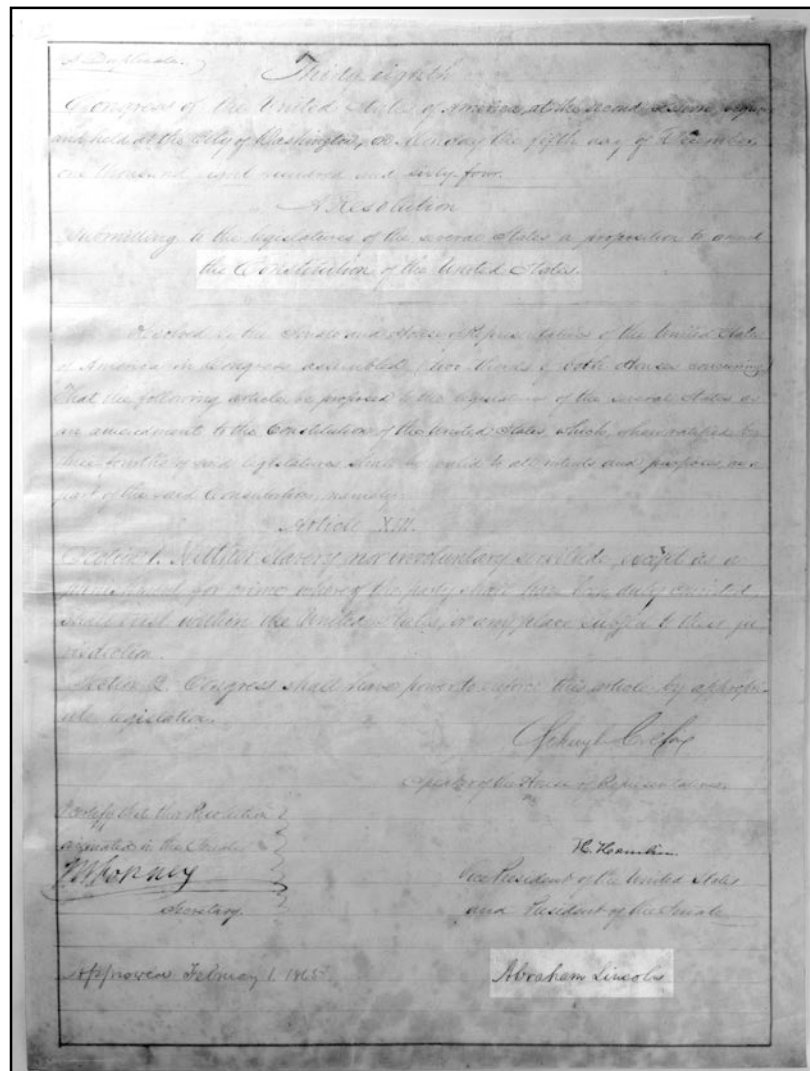 (Duplicate.)
Thirty-Eighth
Congress of the United States of America, at the second Session, begun
and held at the City of Washington, on Monday the fifth day of December,
one thousand eight hundred and sixty-four.
A Resolution
Submitting to the legislatures of the several States a proposition to amend
the Constitution of the United States.
Resolved by the Senate and House of Representatives of the United States
of America in Congress assembled, (two-thirds of both Houses concurring,)
That the following article be proposed to the legislatures of the several States as
an amendment to the Constitution of the United States, which, when ratified by
three-fourths of said legislatures shall be valid, to all intents and purposes, as a
part of the said Constitution, namely:
Article XIII.
Section 1. Neither slavery nor involuntary servitude, except as a
punishment for crime whereof the party shall have been duly convicted,
shall exist within the United States, or any place subject to their ju
risdiction.
Section 2. Congress shall have power to enforce this article by appropri
ate legislation.
Schuyler Colfax
Speaker of the House of Representatives.
I certify that this Resolution
originated in the Senate
H. Hamlin
JW Forney
Vice President of the United States
Secretary.
and President of the Senate
Approved February 1. 1865.
Abraham Lincoln